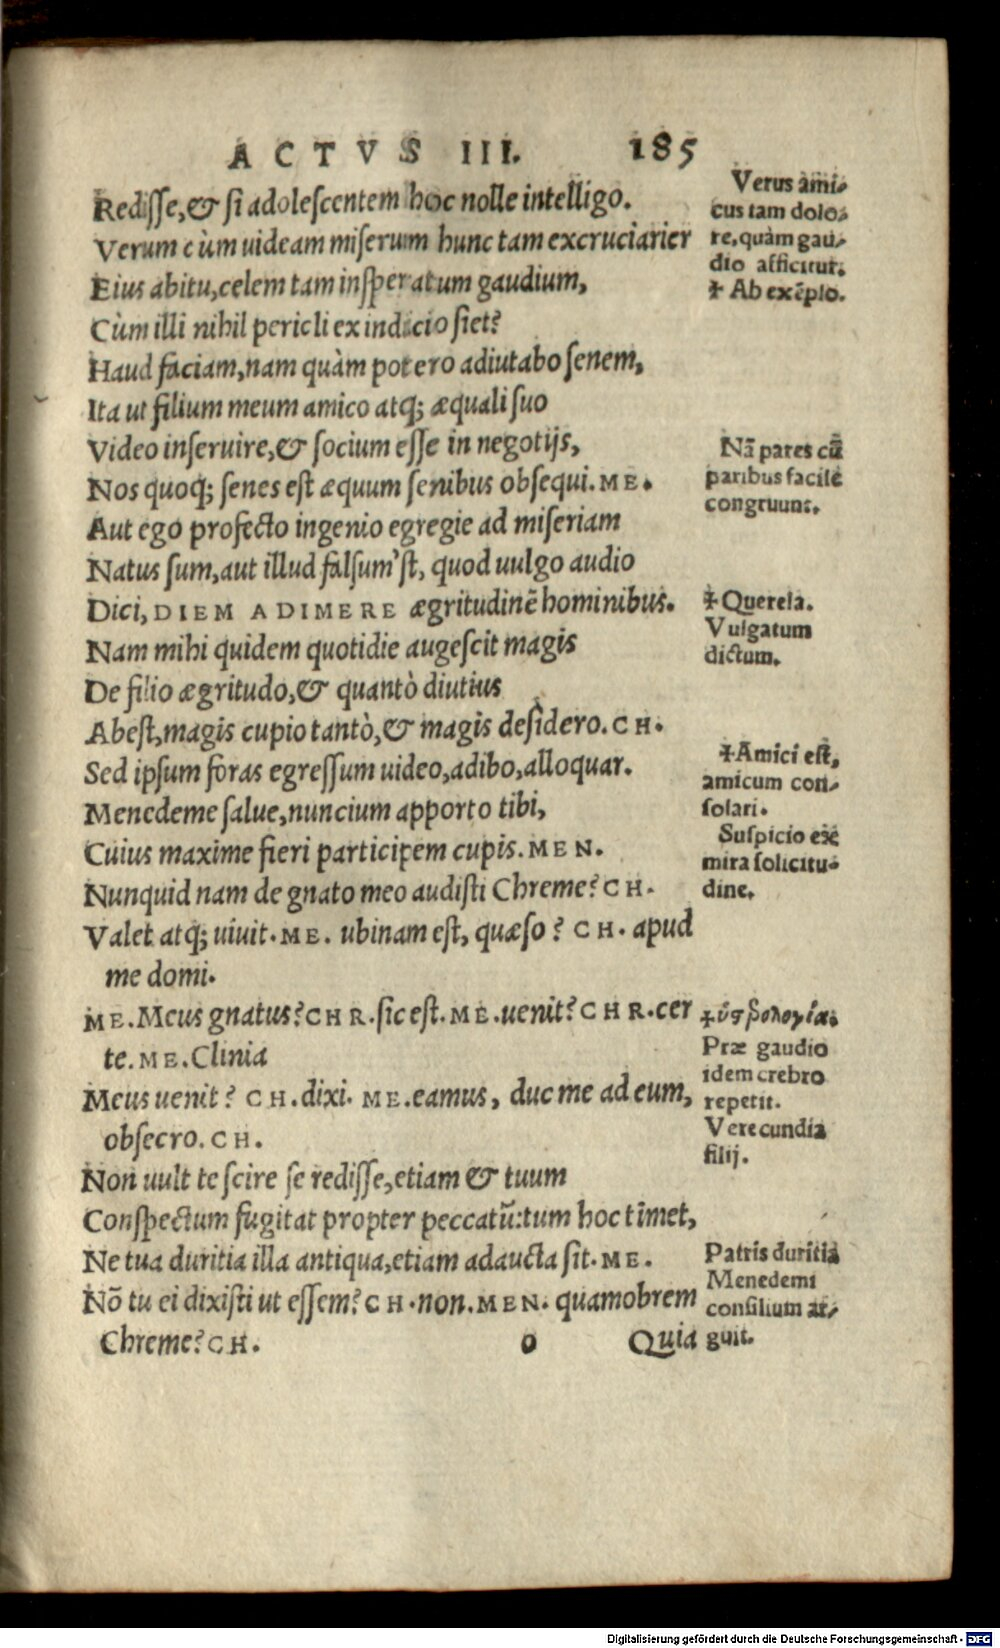 ACTVS III. 185
Rediſſe,& ſi adoleſcentem hoc nolle intelligo.
Verum cùm uideam miſerum hunc tam excruciarier
Eius abitu,celem tam inſperatum gaudium,
Cùm illi nihil pericli ex indicio ſiet?
Haud faciam,nam quàm potero adiutabo ſenem,
Ita ut filium meum amico atq; æquali ſuo
Video inſeruire,& ſocium eſſe in negotijs,
Nos quoq; ſenes eſt æquum ſenibus obſequi.ME.
Aut ego profecto ingenio egregie ad miſeriam
Natus ſum,aut illud falſum'ſt, quod uulgo audio
Dici,DIEM ADIMERE ægritudinẽ hominibus.
Nam mihi quidem quotidie augeſcit magis
De filio ægritudo,& quantò diutius
Abeſt,magis cupio tantò,& magis deſidero.CH.
Sed ipſum foras egreſſum uideo,adibo,alloquar.
Menedeme ſalue,nuncium apporto tibi,
Cuius maxime fieri participem cupis.MEN.
Nunquid nam de gnato meo audiſti Chreme?CH.
Valet atq; uiuit.ME. ubinam eſt, quæſo? CH. apud
me domi.
ME.Meus gnatus?CHR.ſic eſt.ME.uenit?CHR.cer
te.ME.Clinia
Meus uenit? CH.dixi. ME.eamus, duc me ad eum,
obſecro.CH.
Non uult te ſcire ſe rediſſe,etiam & tuum
Conſpectum fugitat propter peccatũ:tum hoc timet,
Ne tua duritia illa antiqua,etiam adaucta ſit.ME.
Nõ tu ei dixiſti ut eſſem?CH.non.MEN. quamobrem
Chreme?CH. o Quia
Verus ami-
cus tam dolo-
re,quàm gau-
dio afficitur.
✝ Ab exẽplo.
Nã pares cũ
paribus facile
congruunt.
✝ Querela.
Vulgatum
dictum.
✝Amici eſt,
amicum con-
ſolari.
Suſpicio exe
mira ſolicitu-
dine.
Præ gaudio
idem crebro
repetit.
Verecundia
filij.
Patris duritia
Menedemi
conſilium ar-
guit.
Digitalisierung gefördert durch die Deutsche Forschungsgemeinschaft - DFG